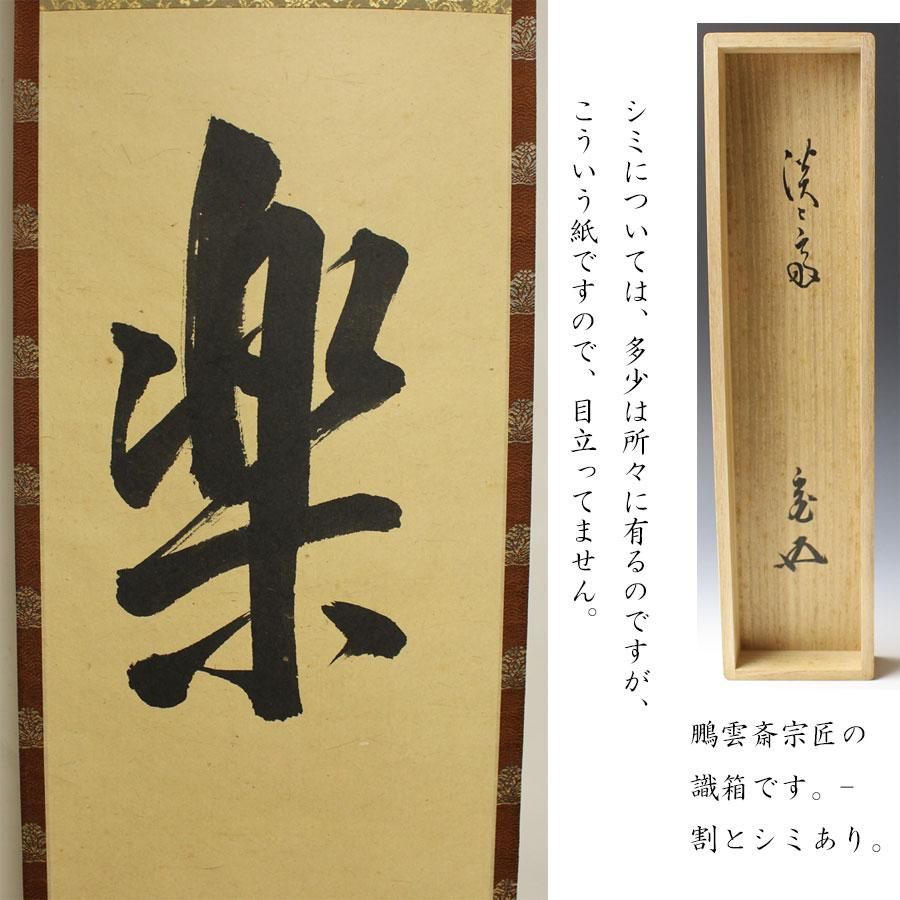 楽
シミについては、多少は所々に有るのですが、
こういう紙ですので、目立ってません。
淡々斎
鵬雲斎宗匠の
識箱です。−
割とシミあり。